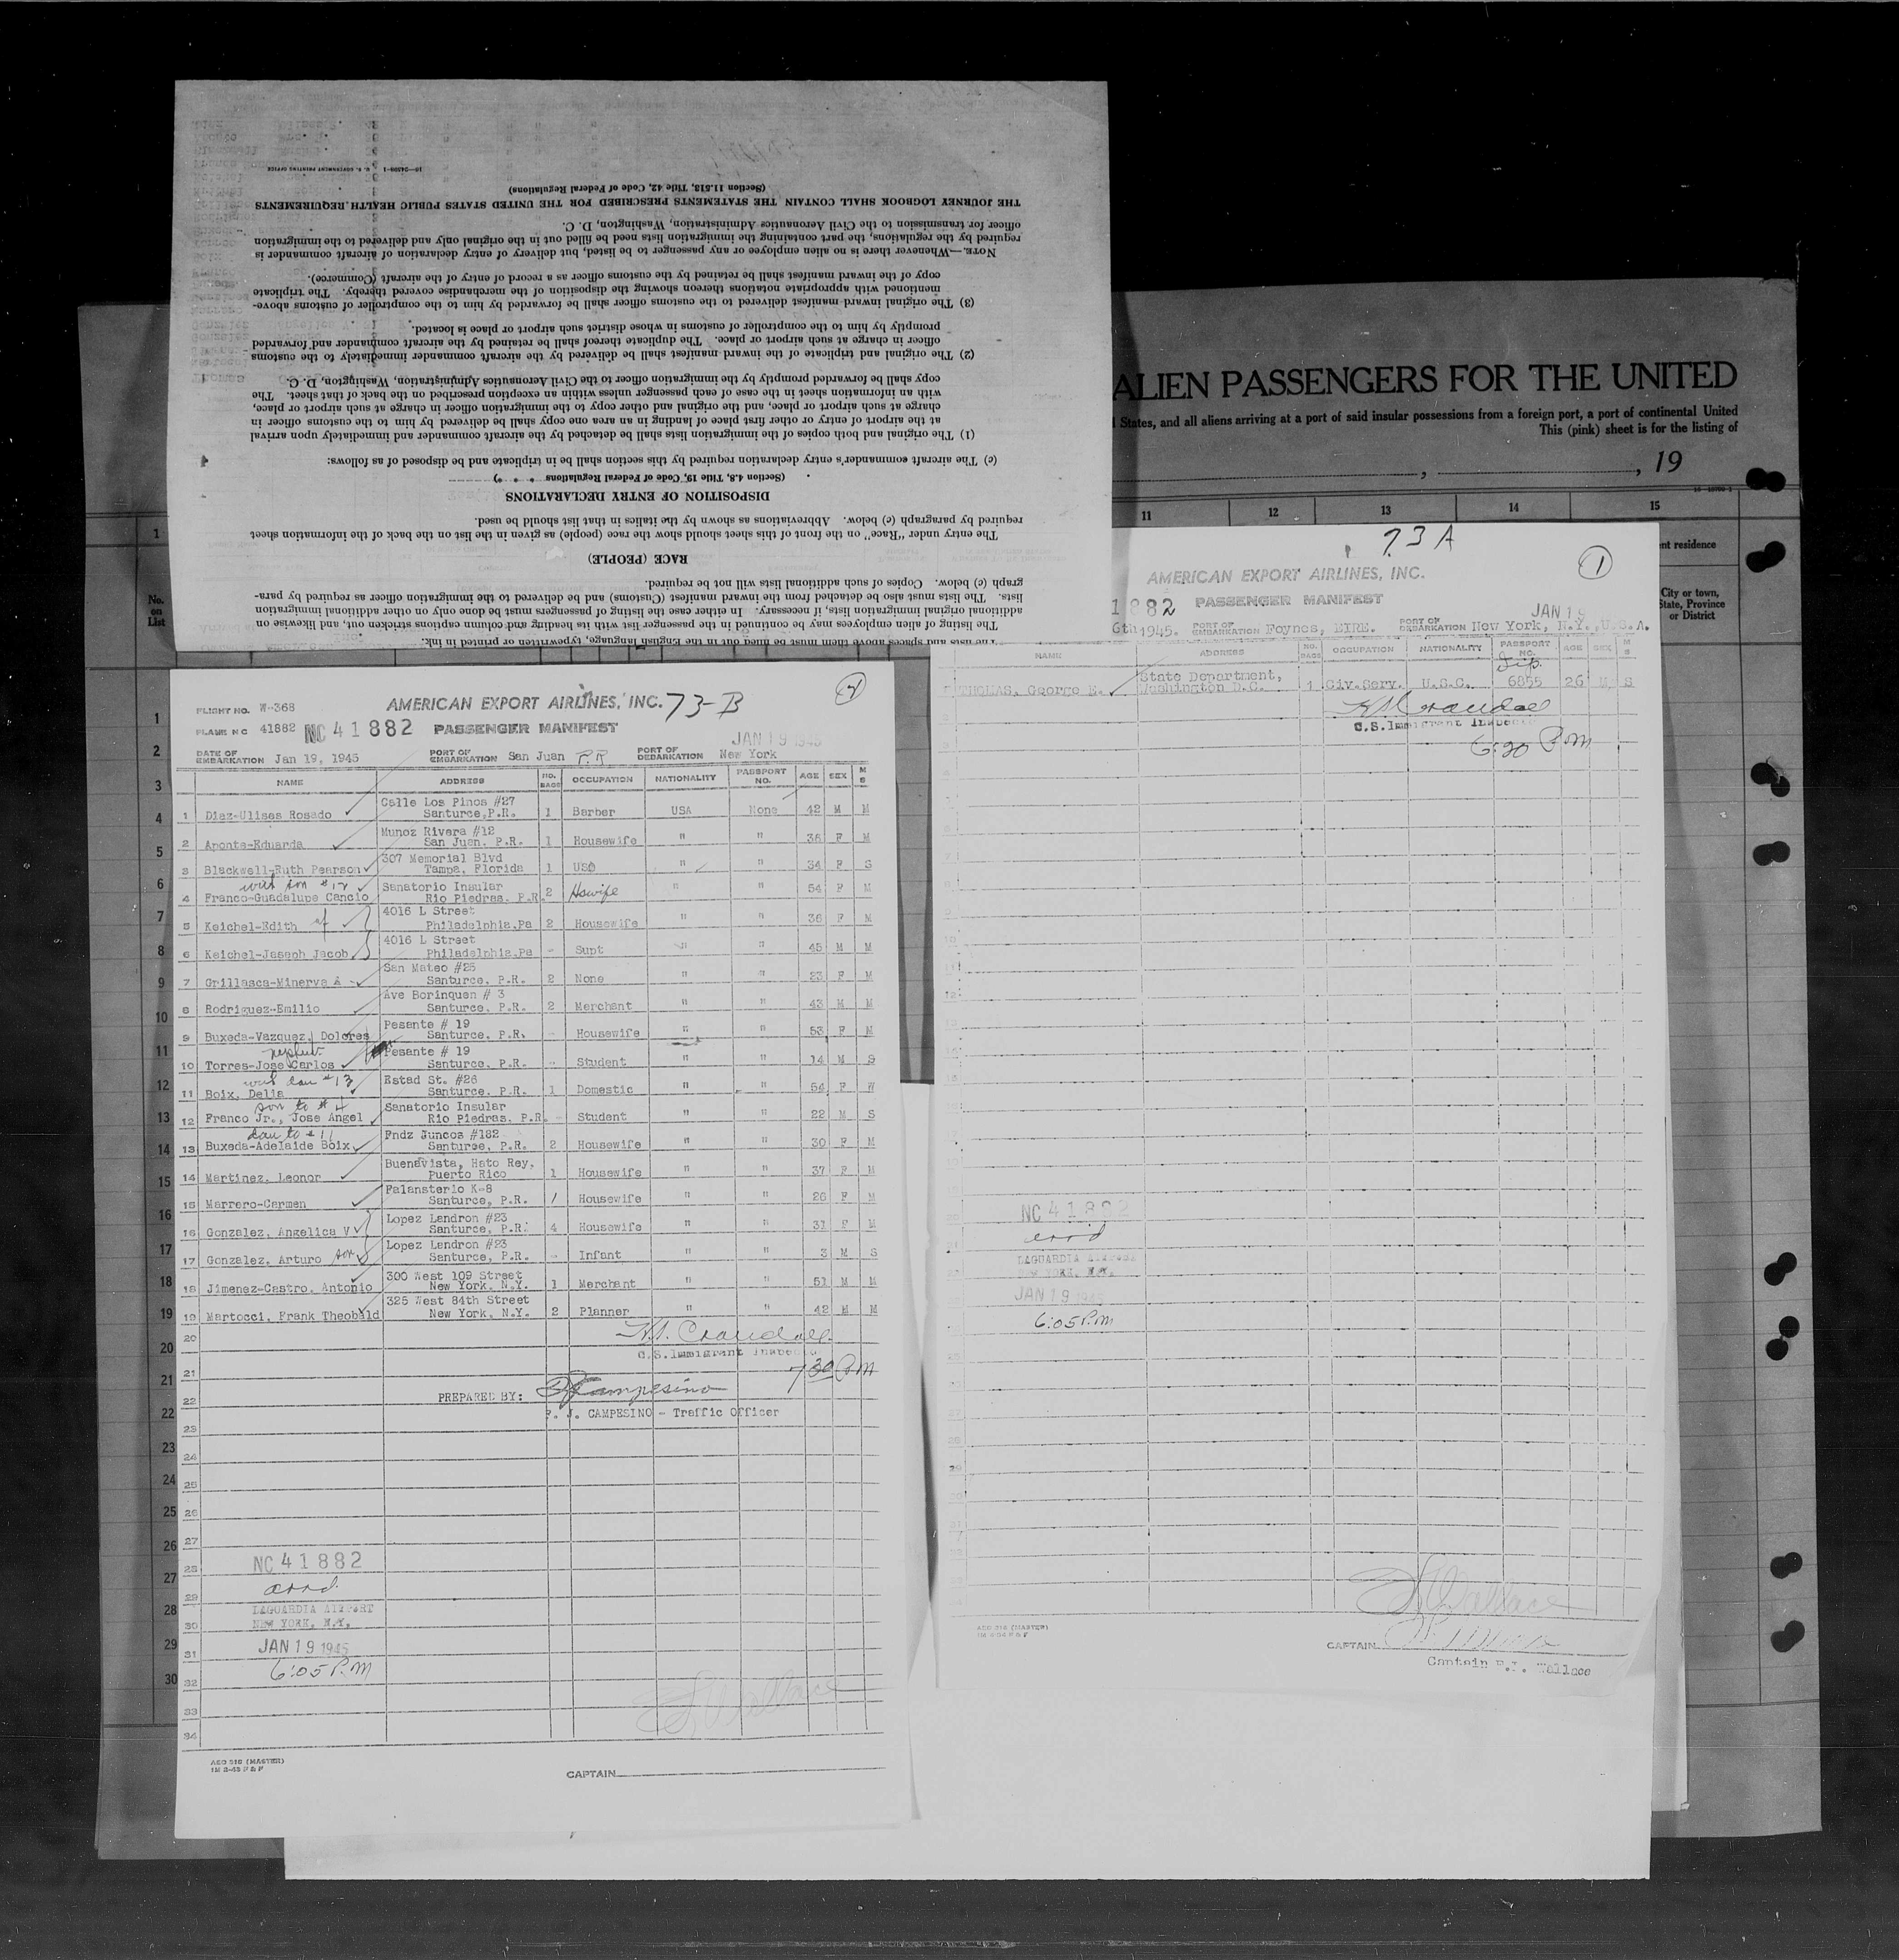 The listing of alien employees may be continued in the passenger list with its heading and column captions stricken out, and likewise on
additional original immigration lists, if necessary. In either case the listing of passengers must be done only on other additional immigration
lists. The lists must also be detached from the inward manifest (Customs) and be delivered to the immigration officer as required by para-
graph (c) below. Copies of such additional lists will not be required.
RACE (PEOPLE)
The entry under "Race" on the front of this sheet should show the race (people) as given in the list on the back of the information sheet
required by paragraph (c) below. Abbreviations as shown by the italics in that list should be used.
DISPOSITION OF ENTRY DECLARATIONS
(Section 4.8, Title 19, Code of Federal Regulations * * *)
(c) The aircraft commander's entry declaration required by this section shall be in triplicate and be disposed of as follows:
(1) The original and both copies of the immigration lists shall be detached by the aircraft commander and immediately upon arrival
at the airport of entry or other first place of landing in an area one copy shall be delivered by him to the customs officer in
charge at such airport or place, and the original and other copy to the immigration officer in charge at such airport or place,
with an information sheet in the case of each passenger unless within an exception prescribed on the back of that sheet. The
copy shall be forwarded promptly by the immigration officer to the Civil Aeronautics Administration, Washington, D. C.
(2) The original and triplicate of the inward manifest shall be delivered by the aircraft commander immediately to the customs
officer in charge at such airport or place. The duplicate thereof shall be retained by the aircraft commander and forwarded
promptly by him to the comptroller of customs in whose district such airport or place is located.
(3) The original inward manifest delivered to the customs officer shall be forwarded by him to the comptroller of customs above-
mentioned with appropriate notations thereon showing the disposition of the merchandise covered thereby. The triplicate
copy of the inward manifest shall be retained by the customs officer as a record of entry of the aircraft (Commerce).
NOTE.—Whenever there is no alien employee or any passenger to be listed, but delivery of entry declaration of aircraft commander is
required by the regulations, the part containing the immigration lists need be filled out in the original only and delivered to the immigration
officer for transmission to the Civil Aeronautics Administration, Washington, D. C.
THE JOURNEY LOGBOOK SHALL CONTAIN THE STATEMENTS PRESCRIBED FOR THE UNITED STATES PUBLIC HEALTH REQUIREMENTS
(Section 11.513, Title 42, Code of Federal Regulations)
U. S. GOVERNMENT PRINTING OFFICE
ALIEN PASSENGERS FOR THE UNITED
States, and all aliens arriving at a port of said insular possessions from a foreign port, a port of continental United
This (pink) sheet is for the listing of
, 19
11 12 13 14 15
nt residence
City or town,
State, Province
or District
1
No.
on
List
1
2
3
4
5
6
7
8
9
10
11
12
13
14
15
16
17
18
19
20
21
22
23
24
25
26
27
28
29
30
AMERICAN EXPORT AIRLINES, INC. 73-B
FLIGHT NO. W-368
PLANE NC 41882 NC 41882 PASSENGER MANIFEST
JAN 19 1945
DATE OF EMBARKATION Jan 19, 1945 PORT OF EMBARKATION San Juan P.R PORT OF DEBARKATION New York
NAME ADDRESS NO. BAGS OCCUPATION NATIONALITY PASSPORT NO. AGE SEX M S
1 Diaz-Ulises Rosado Calle Los Pinos #27 Santurce,P.R. 1 Barber USA None 42 M M
2 Aponte-Eduarda Munoz Rivera #12 San Juan, P.R. 1 Housewife " " 38 F M
3 Blackwell-Ruth Pearson 307 Memorial Blvd Tampa, Florida 1 USO " " 34 F S
with son #12
4 Franco-Guadalupe Cancio Sanatorio Insular Rio Piedras, P.R. 2 Hswife " " 54 F M
5 Keichel-Edith 4016 L Street Philadelphia,Pa 2 Housewife " " 36 F M
6 Keichel-Jaseph Jacob 4016 L Street Philadelphia,Pa - Supt " " 45 M M
7 Grillasca-Minerva A San Mateo #25 Santurce, P.R. 2 None " " 23 F M
8 Rodriguez-Emilio Ave Borinquen # 3 Santurce, P.R. 2 Merchant " " 43 M M
9 Buxeda-Vazquez, Dolores Pesante # 19 Santurce, P.R. - Housewife " " 53 F M
nephew
10 Torres-Jose Carlos Pesante # 19 Santurce, P.R. - Student " " 14 M S
with dau #13
11 Boix, Delia Estad St. #26 Santurce, P.R. 1 Domestic " " 54 F W
son to #4
12 Franco Jr., Jose Angel Sanatorio Insular Rio Piedras, P.R. - Student " " 22 M S
dau to #11
13 Buxeda-Adelaide Boix Fndz Juncos #182 Santurce, P.R. 2 Housewife " " 30 F M
14 Martinez, Leonor Buenavista, Hato Rey, Puerto Rico 1 Housewife " " 37 F M
15 Marrero-Carmen Falansterio K-8 Santurce, P.R. 1 Housewife " " 26 F M
16 Gonzalez, Angelica V Lopez Landron #23 Santurce, P.R. 4 Housewife " " 31 F M
17 Gonzalez, Arturo son Lopez Landron #23 Santurce, P.R. - Infant " " 3 M S
18 Jimenez-Castro, Antonio 300 West 109 Street New York, N.Y. 1 Merchant " " 51 M M
19 Martocci, Frank Theobald 325 West 84th Street New York, N.Y. 2 Planner " " 42 M M
20 H.S. Crandall
U.S.Immigrant Inspector
21 7 30 P M
22 PREPARED BY: Campesino
F. J. CAMPESINO - Traffic Officer
23
24
25
26
27
28 NC 41882
29 arrd.
30 LAGUARDIA AIRPORT
NEW YORK, N.Y.
31 JAN 19 1945
32 6:05 P.M
33 Wallace
34
AEO 318 (MASTER)
CAPTAIN
73 A
1
AMERICAN EXPORT AIRLINES, INC.
1882 PASSENGER MANIFEST
JAN 19
6th 1945. PORT OF EMBARKATION Foynes, EIRE. PORT OF DEBARKATION New York, N.Y.,U.S.A.
NAME ADDRESS NO. BAGS OCCUPATION NATIONALITY PASSPORT NO. AGE SEX M S
THOMAS, George E. State Department, Washington D.C. 1 Civ.Serv. U.S.C. Dip. 6855 26 M S
Crandall
U.S.Immigrant Inspector
6:30 P M
NC 41882
arrd
LAGUARDIA AIRPORT
NEW YORK, N.Y.
JAN 19 1945
6:05 P.M
Wallace
AEO 318 (MASTER)
CAPTAIN
Captain Wallace